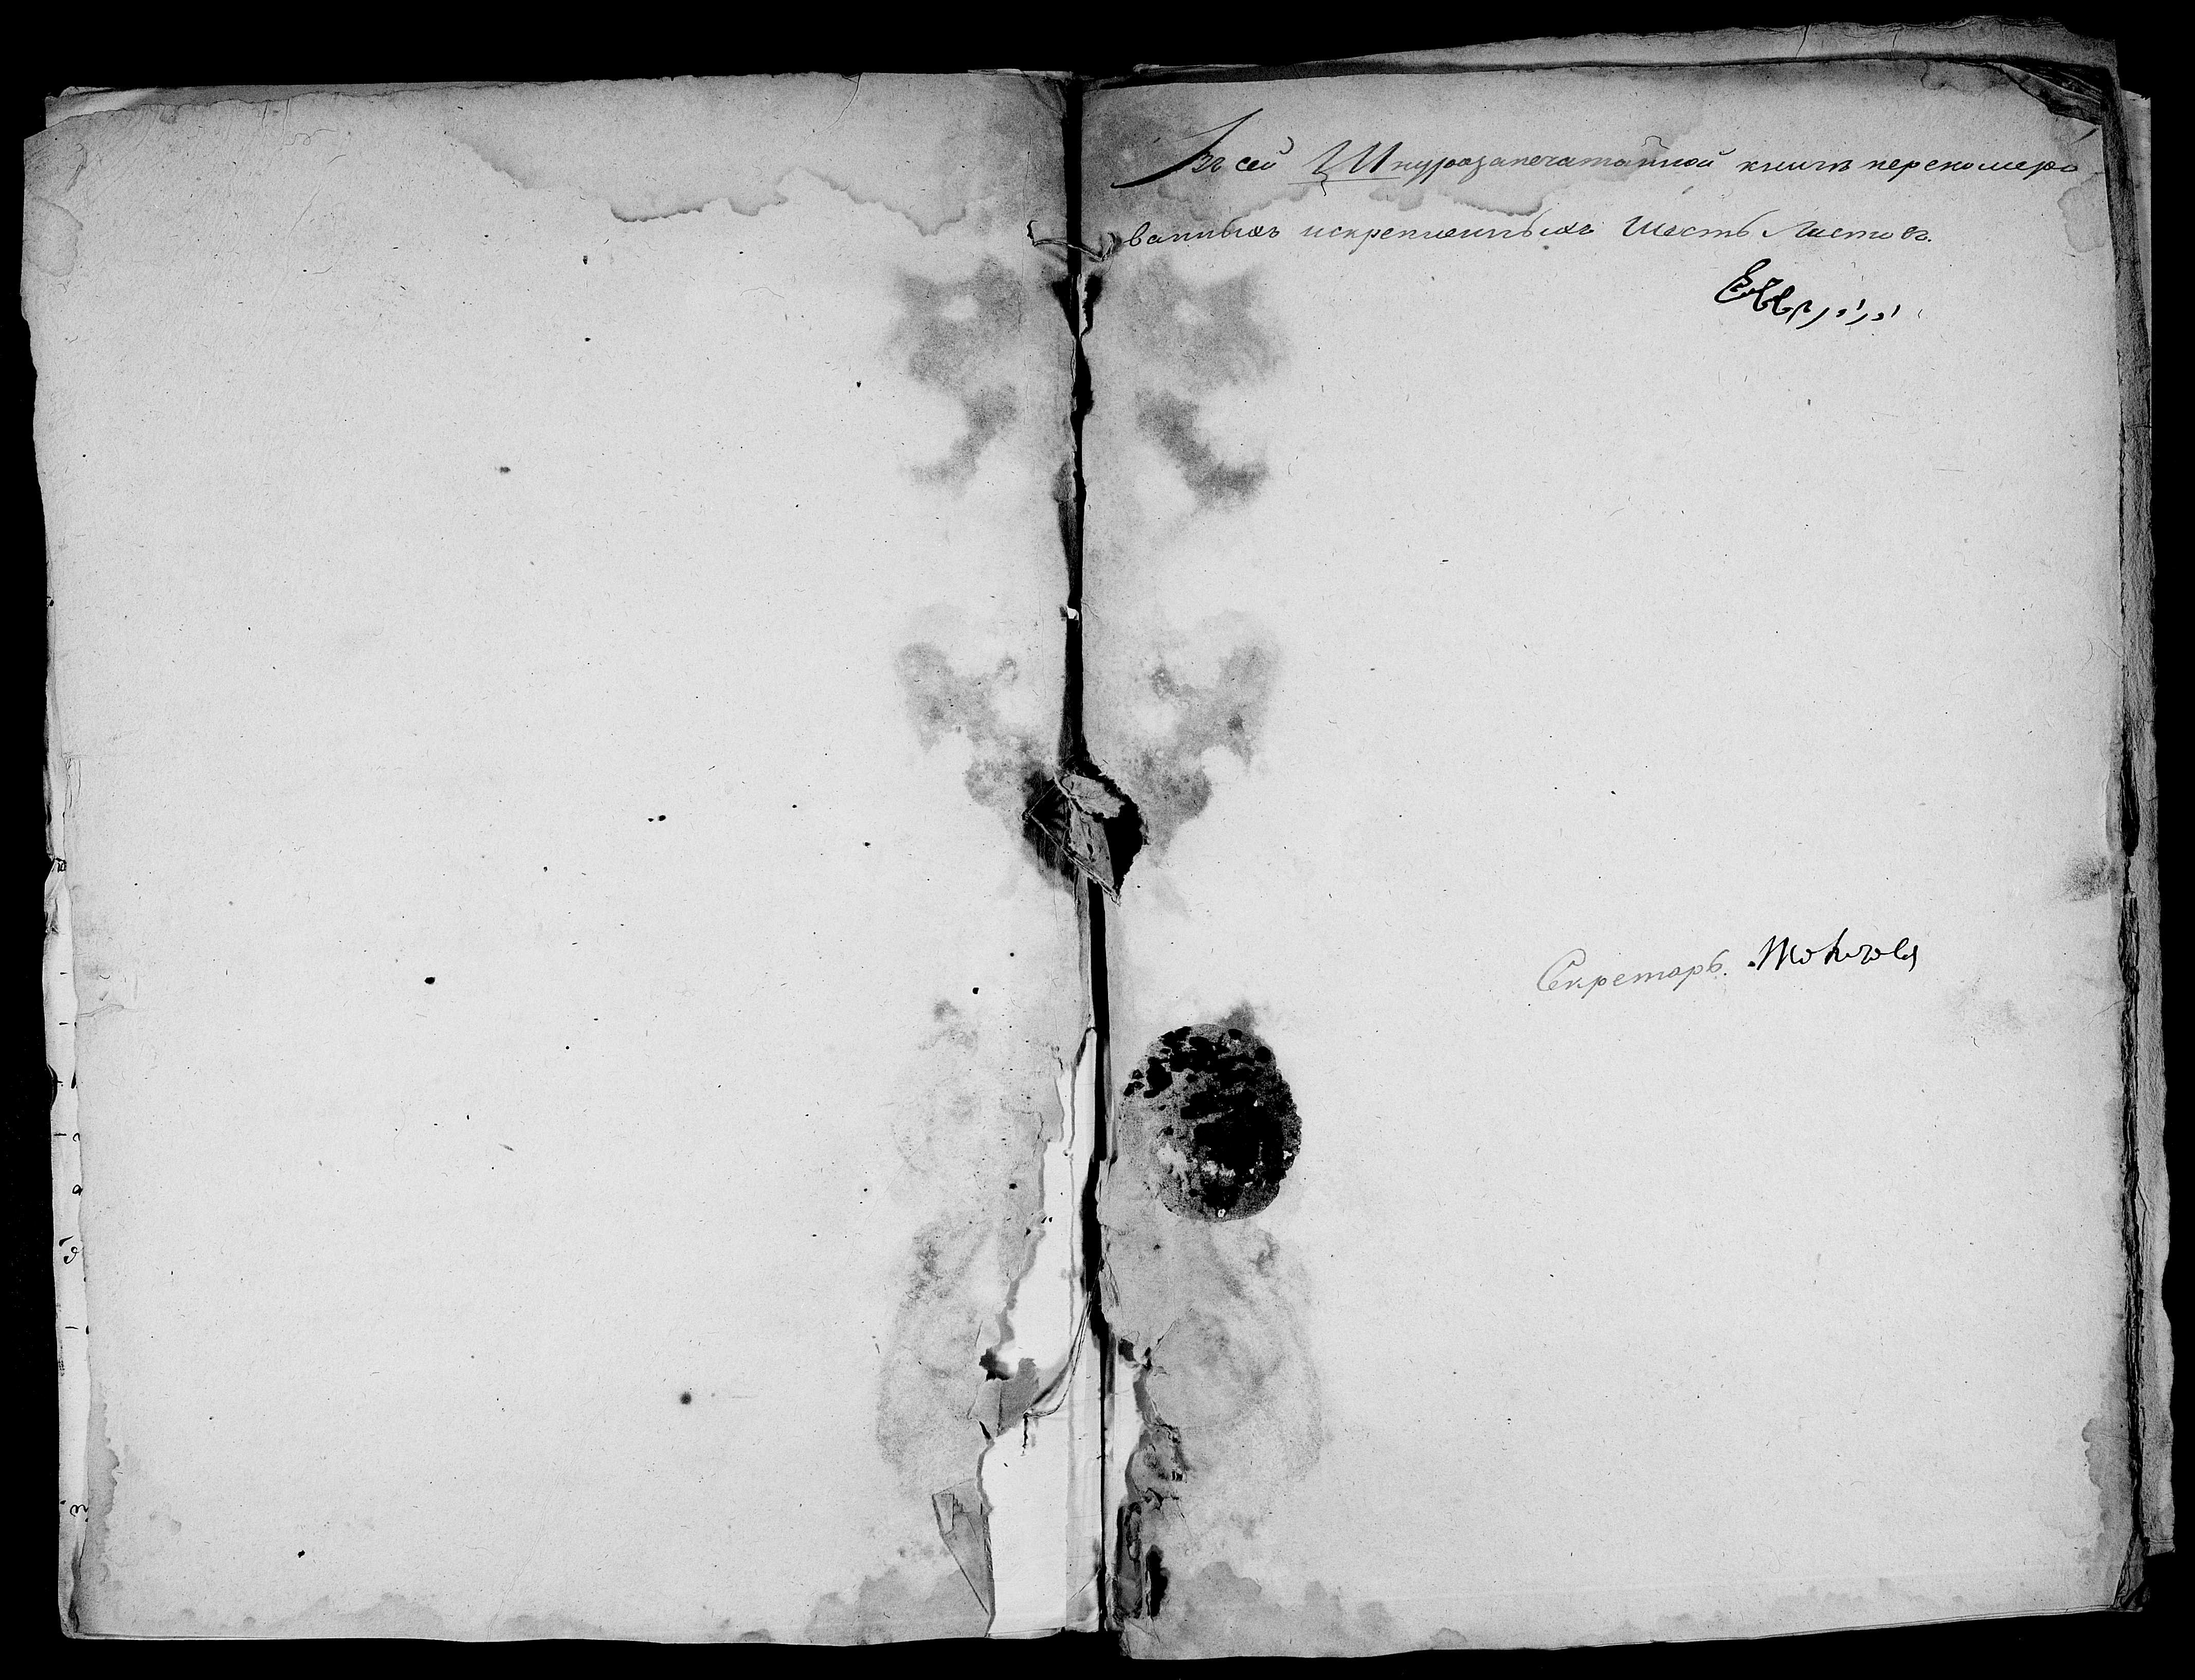 Въ сей Шнурозапечатанной книгѣ переномеро
ванныхъ искрепленныхъ шесть листовъ.
Секретарь